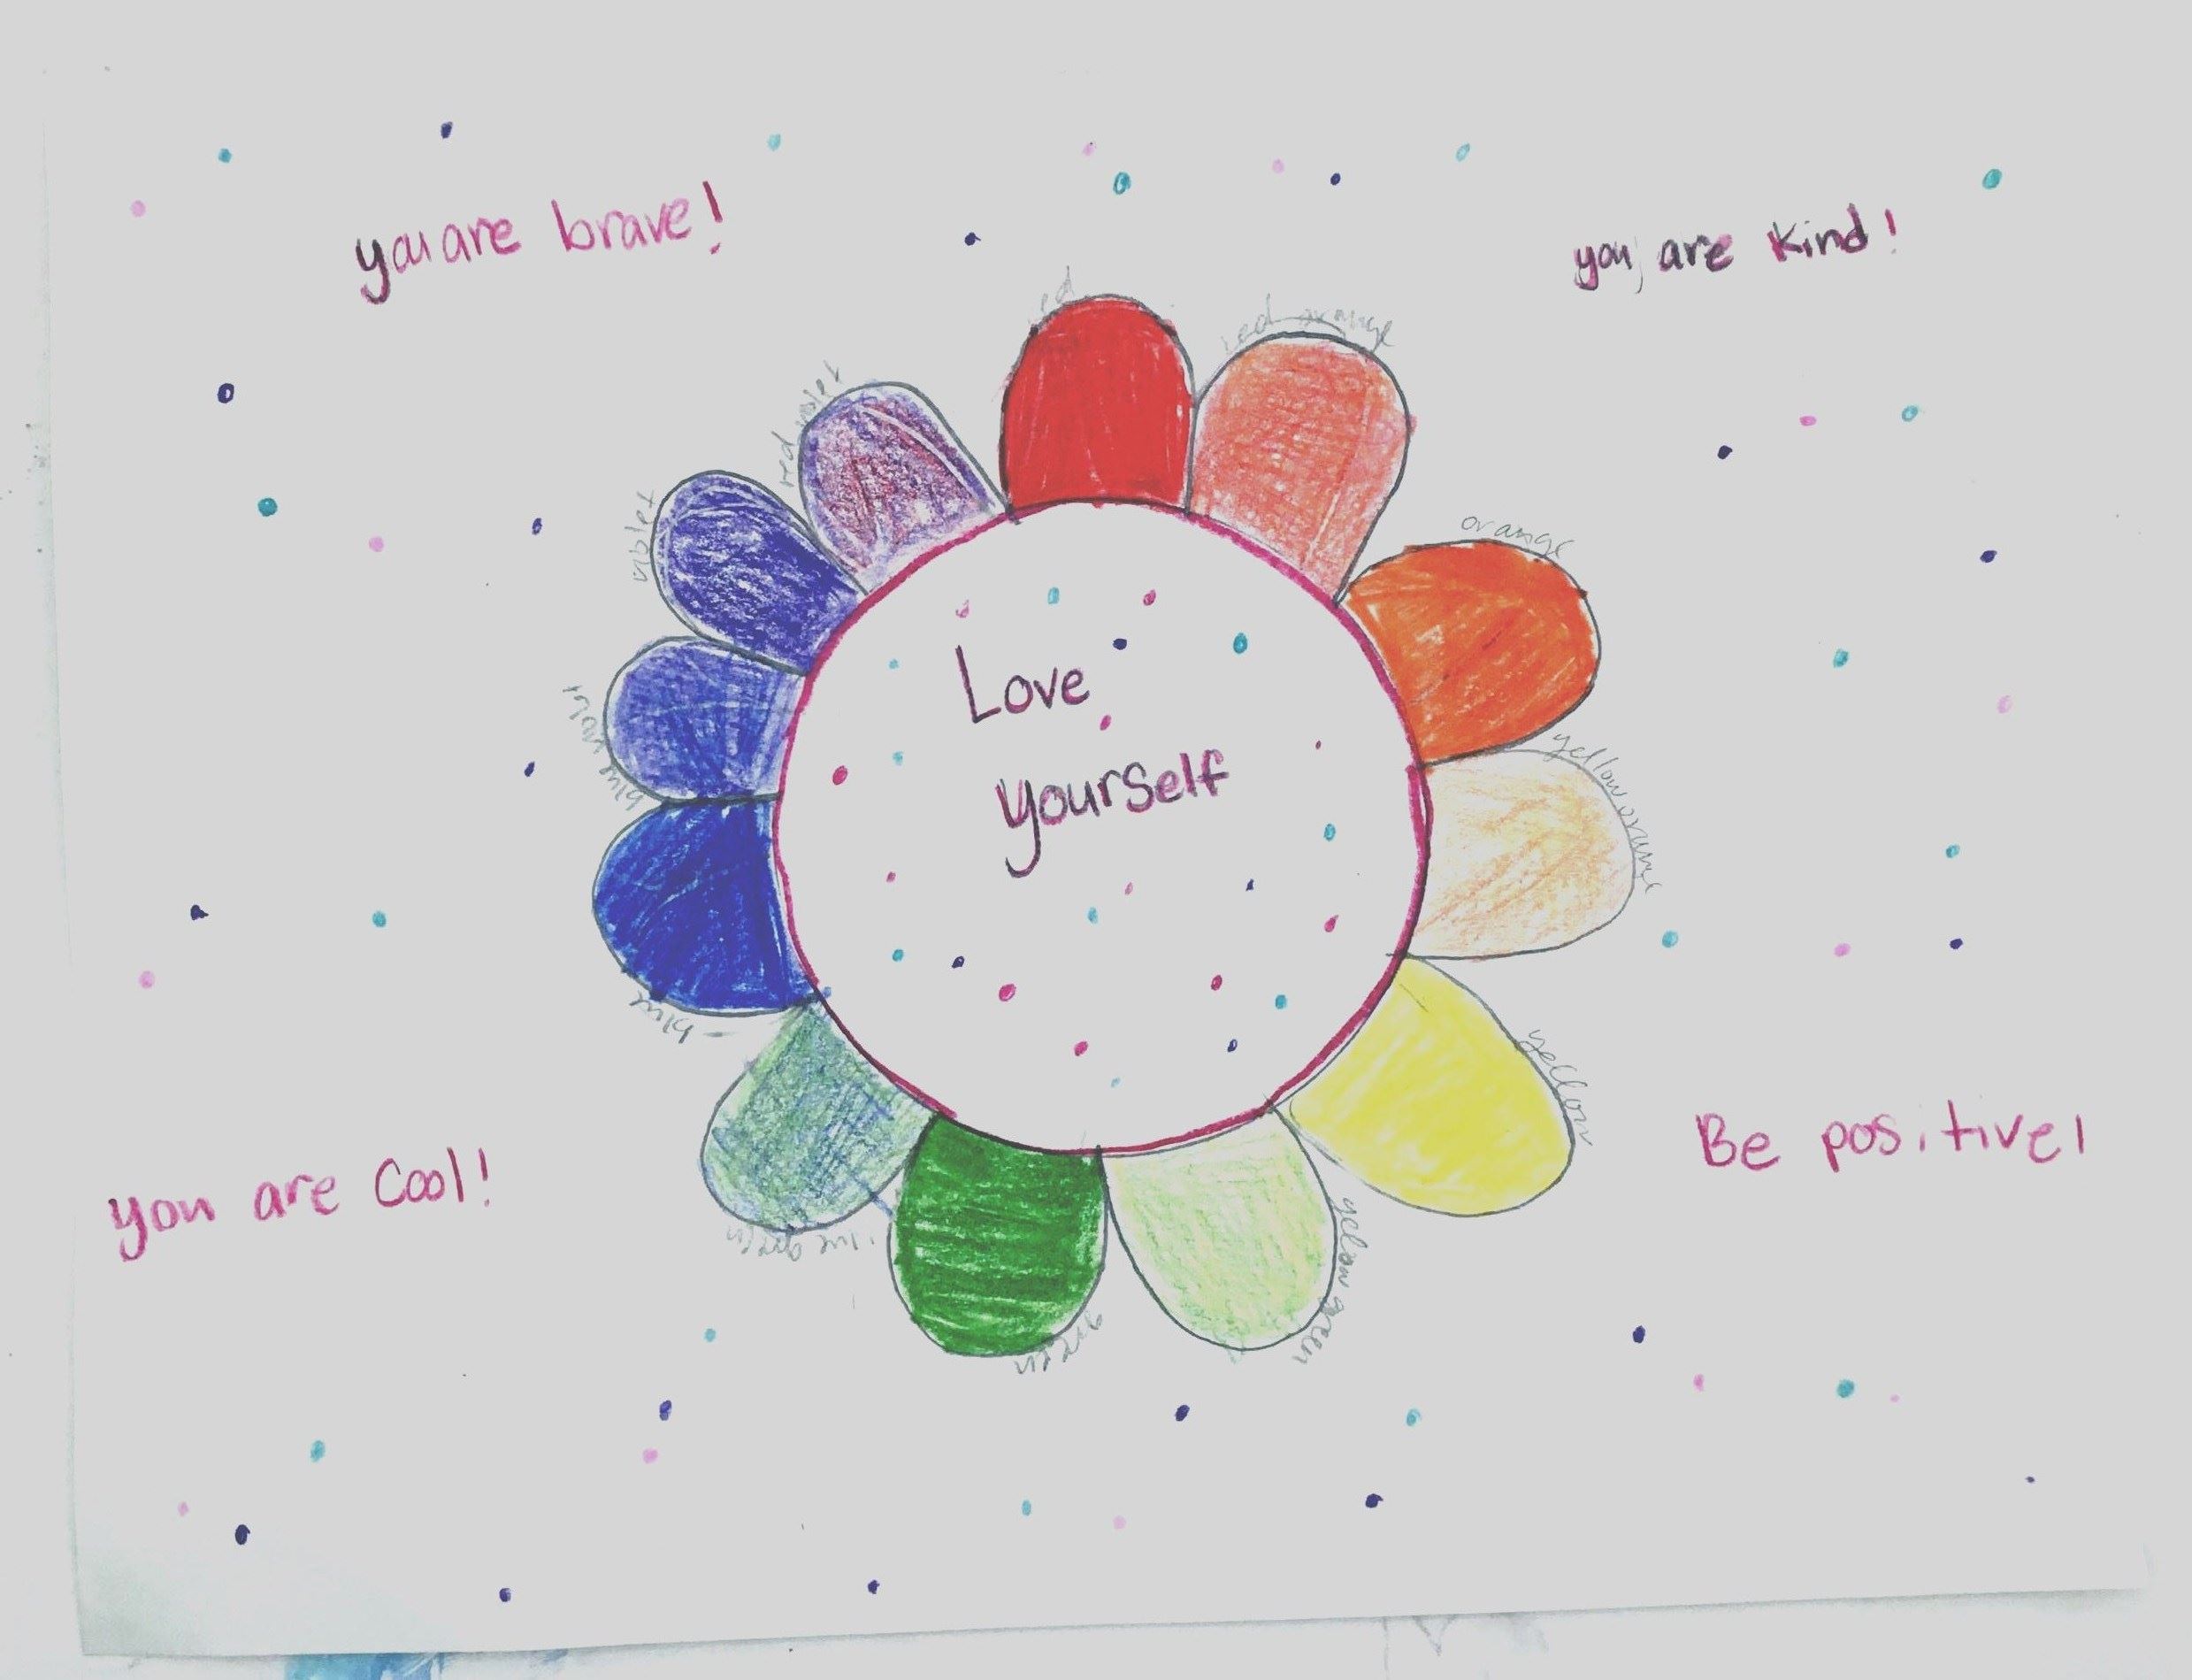 you are brave!
you are kind!
red orange
red violet
violet
orange
Love
yourself
blue violet
yellow orange
blue
yellow
Be positive!
you are Cool!
yellow green
green